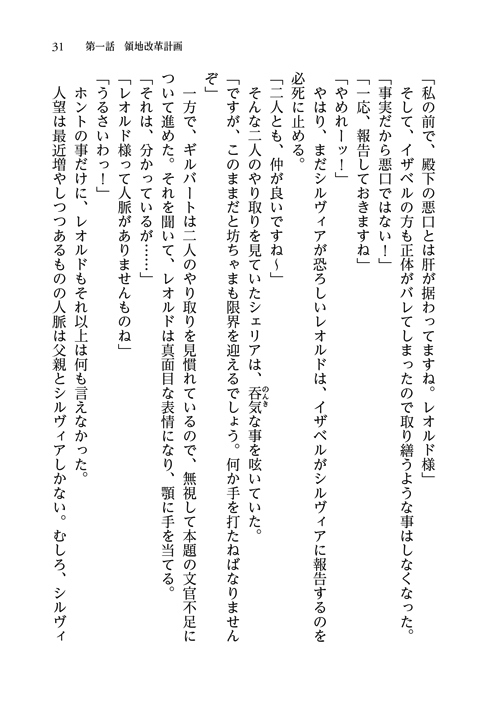 31　第一話　領地改革計画
「私の前で、殿下の悪口とは肝が据わってますね。レオルド様」
そして、イザベルの方も正体がバレてしまったので取り繕うような事はしなくなった。
「事実だから悪口ではない！」
「一応、報告しておきますね」
「やめれーッ！」
やはり、まだシルヴィアが恐ろしいレオルドは、イザベルがシルヴィアに報告するのを
必死に止める。
「二人とも、仲が良いですね〜」
そんな二人のやり取りを見ていたシェリアは、呑気な事を呟いていた。
のんき
「ですが、このままだと坊ちゃまも限界を迎えるでしょう。何か手を打たねばなりません
ぞ」
一方で、ギルバートは二人のやり取りを見慣れているので、無視して本題の文官不足に
ついて進めた。それを聞いて、レオルドは真面目な表情になり、顎に手を当てる。
「それは、分かっているが……」
「レオルド様って人脈がありませんものね」
「うるさいわっ！」
ホントの事だけに、レオルドもそれ以上は何も言えなかった。
人望は最近増やしつつあるものの人脈は父親とシルヴィアしかない。むしろ、シルヴィ